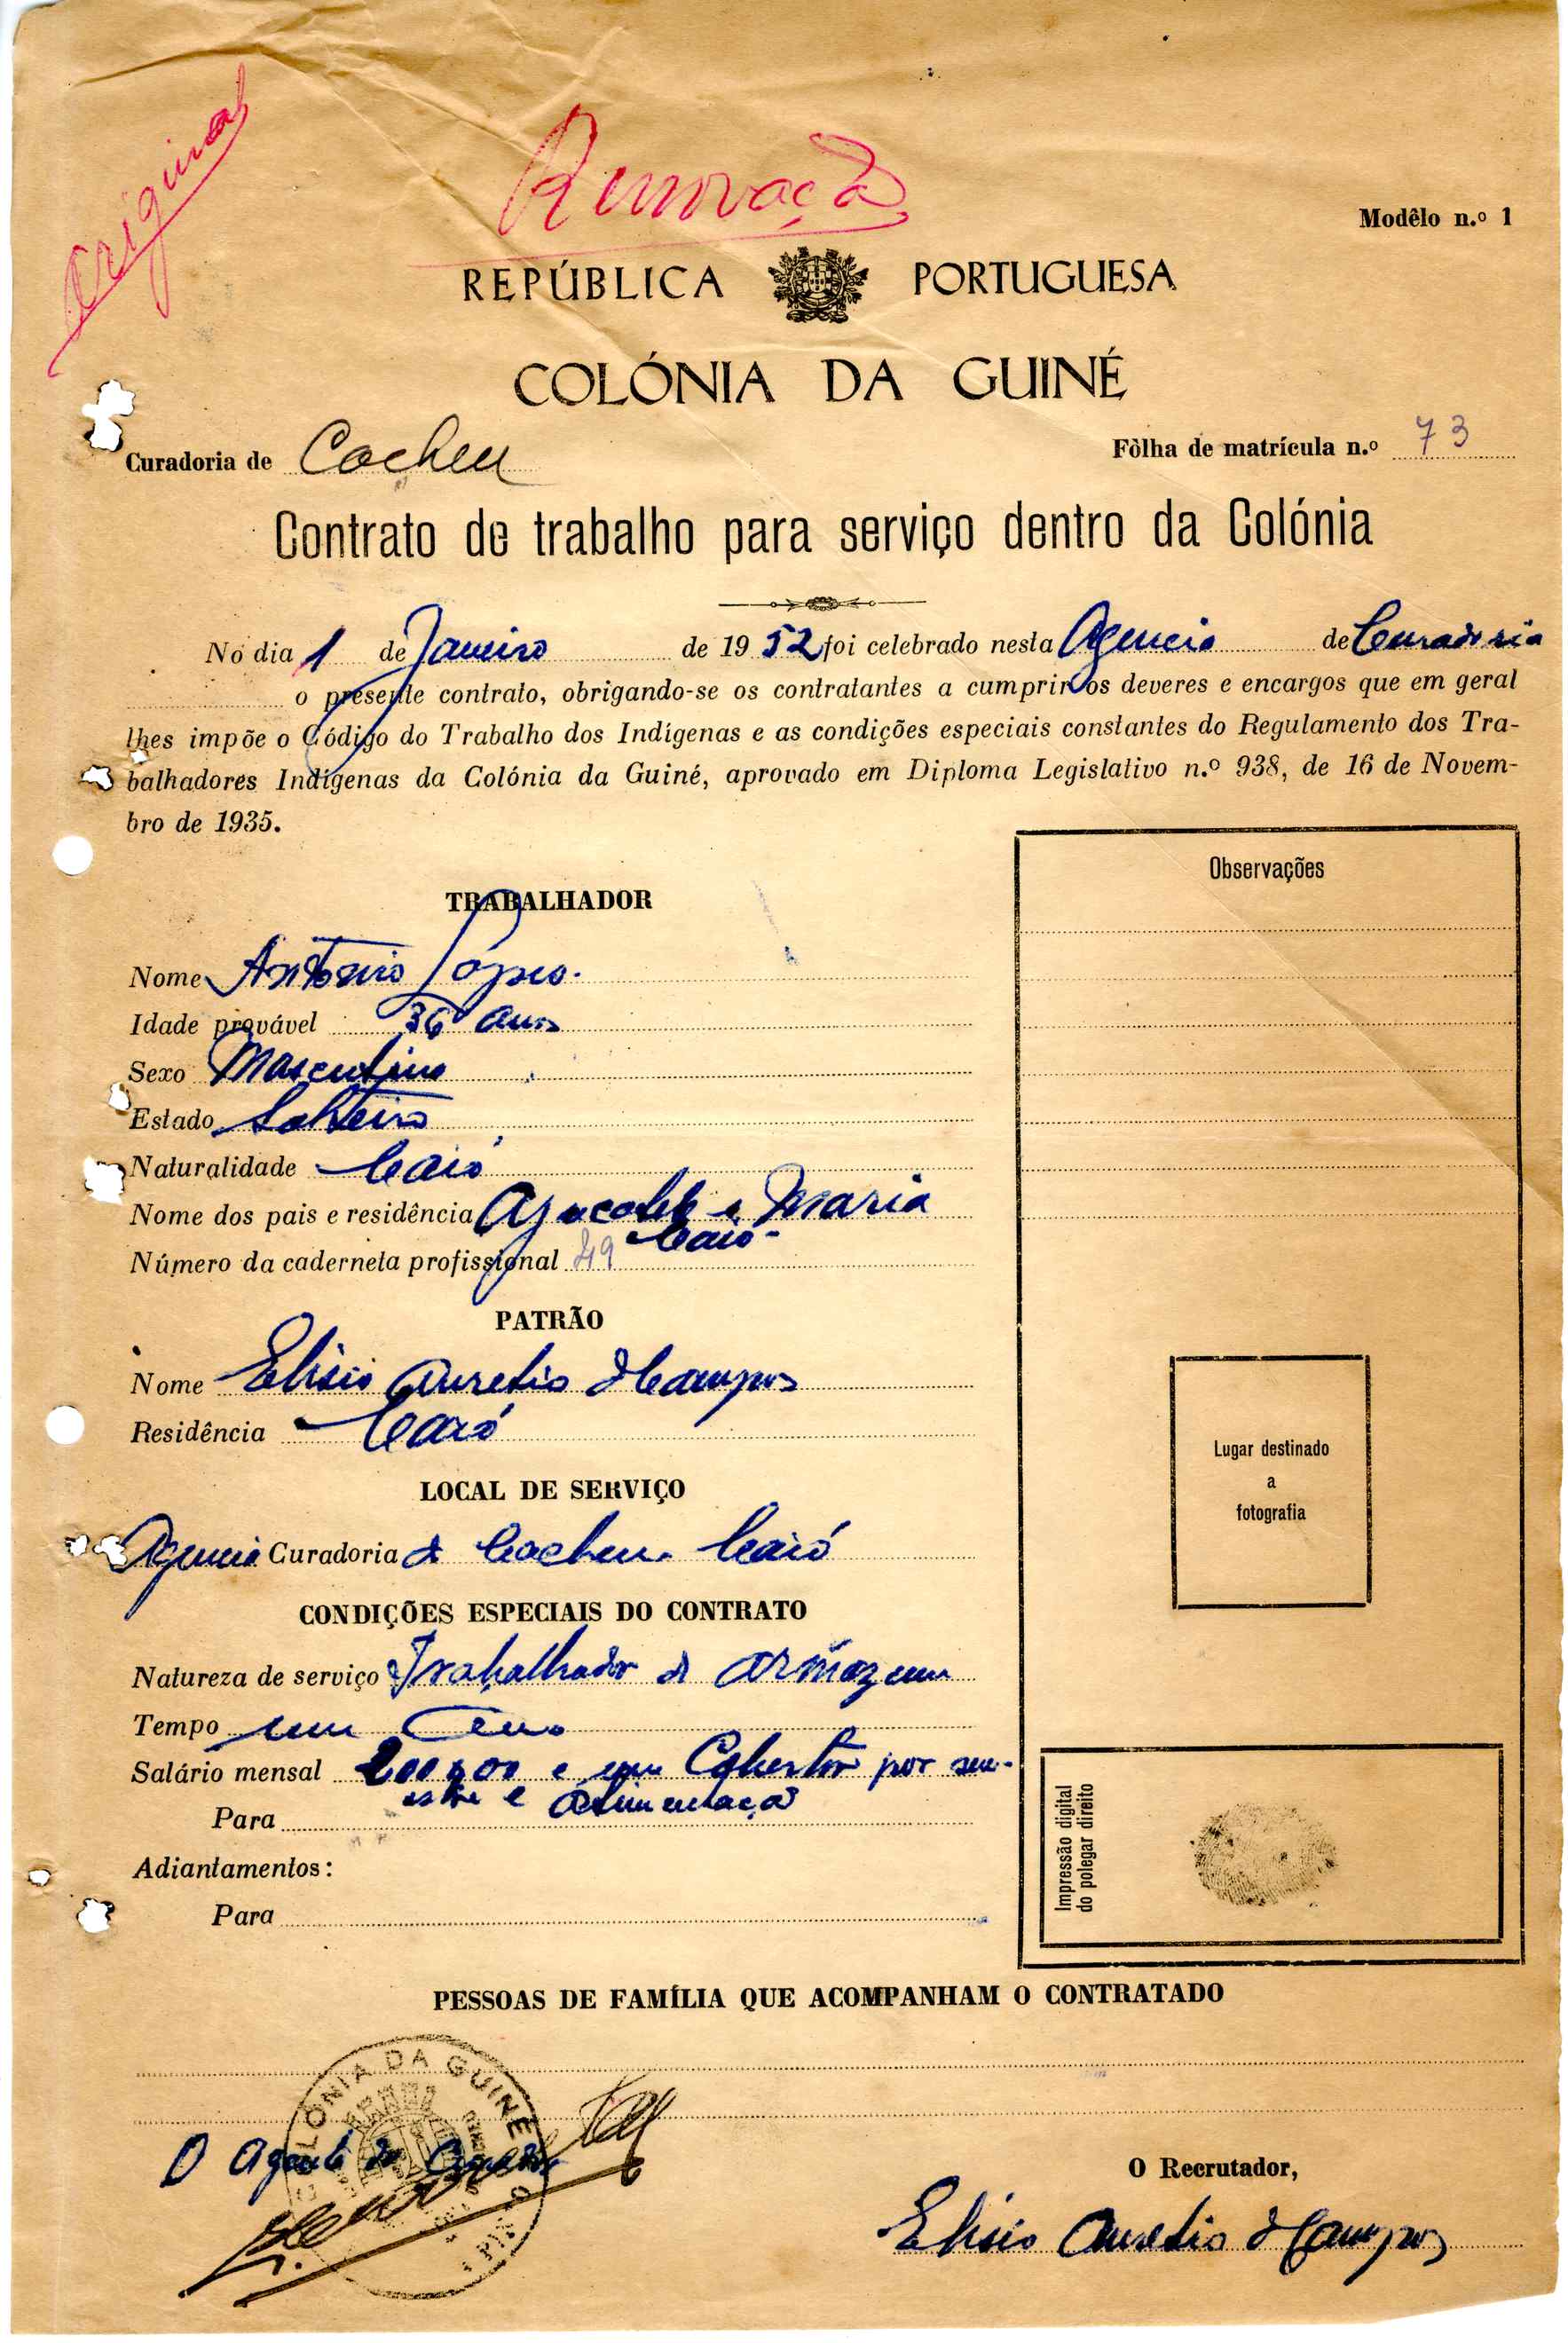 Original
Renovação
Modêlo n.º 1
REPÚBLICA PORTUGUESA
COLÓNIA DA GUINÉ
Curadoria de Cacheu Fôlha de matrícula n.º 73
Contrato de trabalho para serviço dentro da Colónia
No dia 1 de Janeiro de 1952 foi celebrado nesta Agencia de Curadoria
o presente contrato, obrigando-se os contratantes a cumprir os deveres e encargos que em geral
lhes impõe o Código do Trabalho dos Indígenas e as condições especiais constantes do Regulamento dos Tra-
balhadores Indígenas da Colónia da Guiné, aprovado em Diploma Legislativo n.º 938, de 16 de Novem-
bro de 1935.
Observações
TRABALHADOR
Nome António Lopes.
Idade provável 36 anos
Sexo Masculino
Estado Solteiro
Naturalidade Caió
Nome dos pais e residência e Maria
Caió-
Número da caderneta profissional 49
PATRÃO
Nome Elisio Aurelio d Campos
Residência Caió
Lugar destinado
a
fotografia
LOCAL DE SERVIÇO
Agencia Curadoria d Cacheu Caió
CONDIÇÕES ESPECIAIS DO CONTRATO
Natureza de serviço Trabalhador d armazem
Tempo um ano
Salário mensal 200$00 e um Cobertor por sem-
estre e alimentação
Para
Adiantamentos:
Para
Impressão digital
do polegar direito
PESSOAS DE FAMÍLIA QUE ACOMPANHAM O CONTRATADO
COLÓNIA DA GUINÉ
O Agente do Curador
O Recrutador,
Elisio Aurelio d Campos